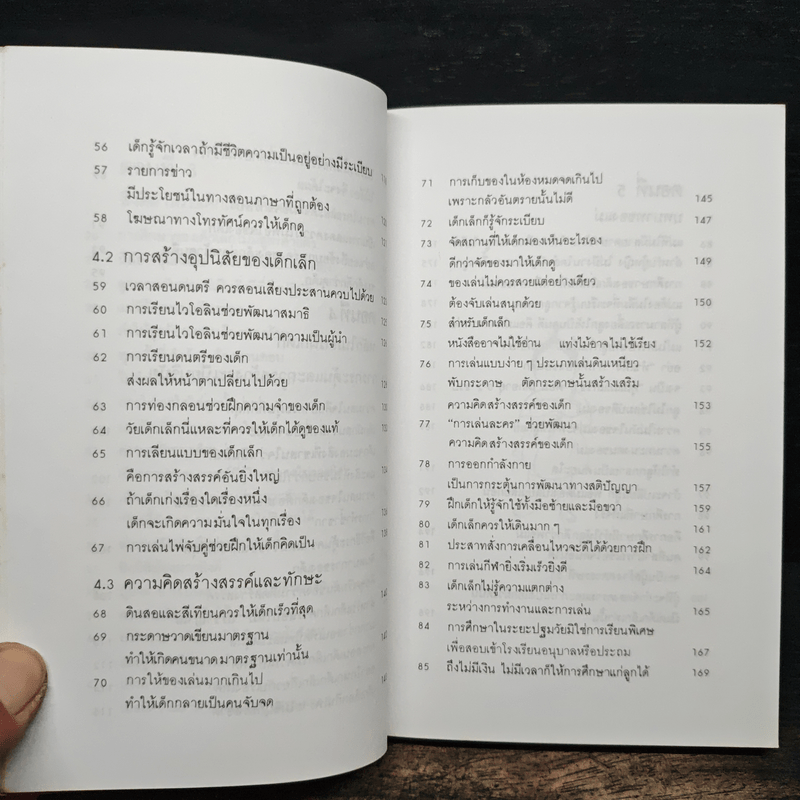 56 เด็กรู้จักเวลาถ้ามีชีวิตความเป็นอยู่อย่างมีระเบียบ
57 รายการข่าว
มีประโยชน์ในทางสอนภาษาที่ถูกต้อง
58 โฆษณาทางโทรทัศน์ควรให้เด็กดู
4.2 การสร้างอุปนิสัยของเด็กเล็ก
59 เวลาสอนดนตรี ควรสอนเสียงประสานควบไปด้วย
60 การเรียนไวโอลินช่วยพัฒนาสมาธิ
61 การเรียนไวโอลินช่วยพัฒนาความเป็นผู้นำ
62 การเรียนดนตรีของเด็ก
ส่งผลให้หน้าตาเปลี่ยนไปด้วย
63 การท่องกลอนช่วยฝึกความจำของเด็ก
64 วัยเด็กเล็กนี่แหละที่ควรให้เด็กได้ดูของแท้
65 การเลียนแบบของเด็กเล็ก
คือการสร้างสรรค์อันยิ่งใหญ่
66 ถ้าเด็กเก่งเรื่องใดเรื่องหนึ่ง
เด็กจะเกิดความมั่นใจในทุกเรื่อง
67 การเล่นไพ่จับคู่ช่วยฝึกให้เด็กคิดเป็น
4.3 ความคิดสร้างสรรค์และทักษะ
68 ดินสอและสีเทียนควรให้เด็กเร็วที่สุด
69 กระดาษวาดเขียนมาตรฐาน
ทำให้เกิดคนขนาดมาตรฐานเท่านั้น
70 การให้ของเล่นมากเกินไป
ทำให้เด็กกลายเป็นคนจับจด
71 การเก็บของในห้องหมดจดเกินไป
เพราะกลัวอันตรายนั้นไม่ดี 145
72 เด็กเล็กก็รู้จักระเบียบ 147
73 จัดสถานที่ให้เด็กมองเห็นอะไรเอง
ดีกว่าจัดของมาให้เด็กดู 149
74 ของเล่นไม่ควรสวยแต่อย่างเดียว
ต้องจับเล่นสนุกด้วย 150
75 สำหรับเด็กเล็ก
หนังสืออาจไม่ใช้อ่าน แท่งไม้อาจไม่ใช้เรียง 152
76 การเล่นแบบง่าย ๆ ประเภทเล่นดินเหนียว
พับกระดาษ ตัดกระดาษนั้นสร้างเสริม
ความคิดสร้างสรรค์ของเด็ก 153
77 “การเล่นละคร” ช่วยพัฒนา
ความคิดสร้างสรรค์ของเด็ก 155
78 การออกกำลังกาย
เป็นการกระตุ้นการพัฒนาทางสติปัญญา 157
79 ฝึกเด็กให้รู้จักใช้ทั้งมือซ้ายและมือขวา 159
80 เด็กเล็กควรให้เดินมาก ๆ 161
81 ประสาทสั่งการเคลื่อนไหวจะดีได้ด้วยการฝึก 162
82 การเล่นกีฬายิ่งเริ่มเร็วยิ่งดี 164
83 เด็กเล็กไม่รู้ความแตกต่าง
ระหว่างการทำงานและการเล่น 165
84 การศึกษาในระยะปฐมวัยมิใช่การเรียนพิเศษ
เพื่อสอบเข้าโรงเรียนอนุบาลหรือประถม 167
85 ถึงไม่มีเงิน ไม่มีเวลาก็ให้การศึกษาแก่ลูกได้ 169